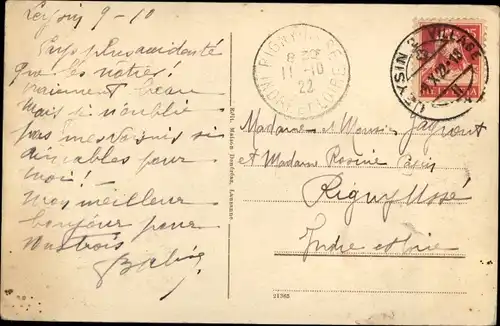 Leysin 9-10
Pays plus accidenté
que les nôtres!
vraiment beau
Mais je n'oublie
pas mes voisins si
aimables pour
moi!
Mes meilleurs
bonjours pour
vous trois
Edit. Maison Lausanne.
RIGNY-USSÉ
11-10
22
INDRE ET LOIRE
LEYSIN VILLAGE
X.22-18
HELVETIA
Madame et Monsieur
et Madame Rosine
Rigny Ussé
Indre et Loire
21365